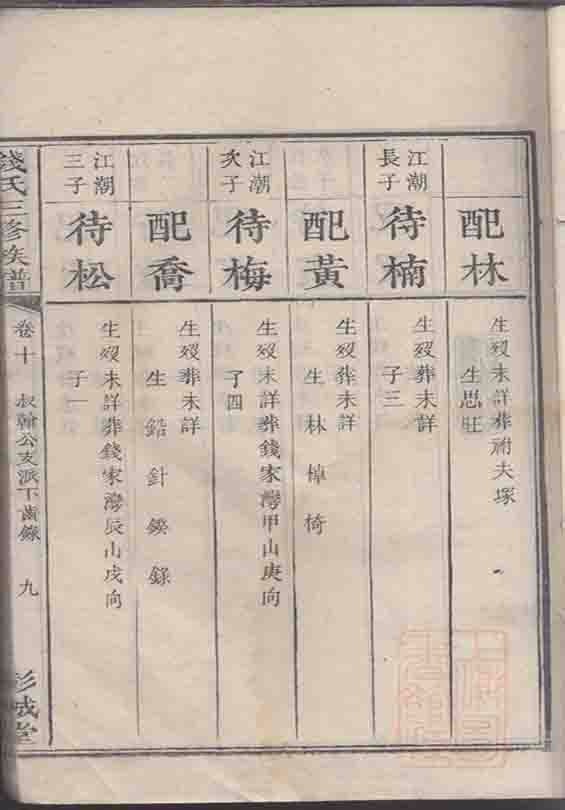 配林
生歿未詳葬祔夫塚
生思旺
江潮
長子
待楠
生歿葬未詳
子三
配黃
生歿葬未詳
生林棹椅
江潮
次子
待梅
生歿未詳葬錢家灣甲山庚向
子四
配喬
生歿葬未詳
生鋯針鍨錄
江潮
三子
待松
生歿未詳葬錢家灣辰山戌向
子一
錢氏三修族譜
卷十
叔翰公支派下齒錄
九
彭城堂